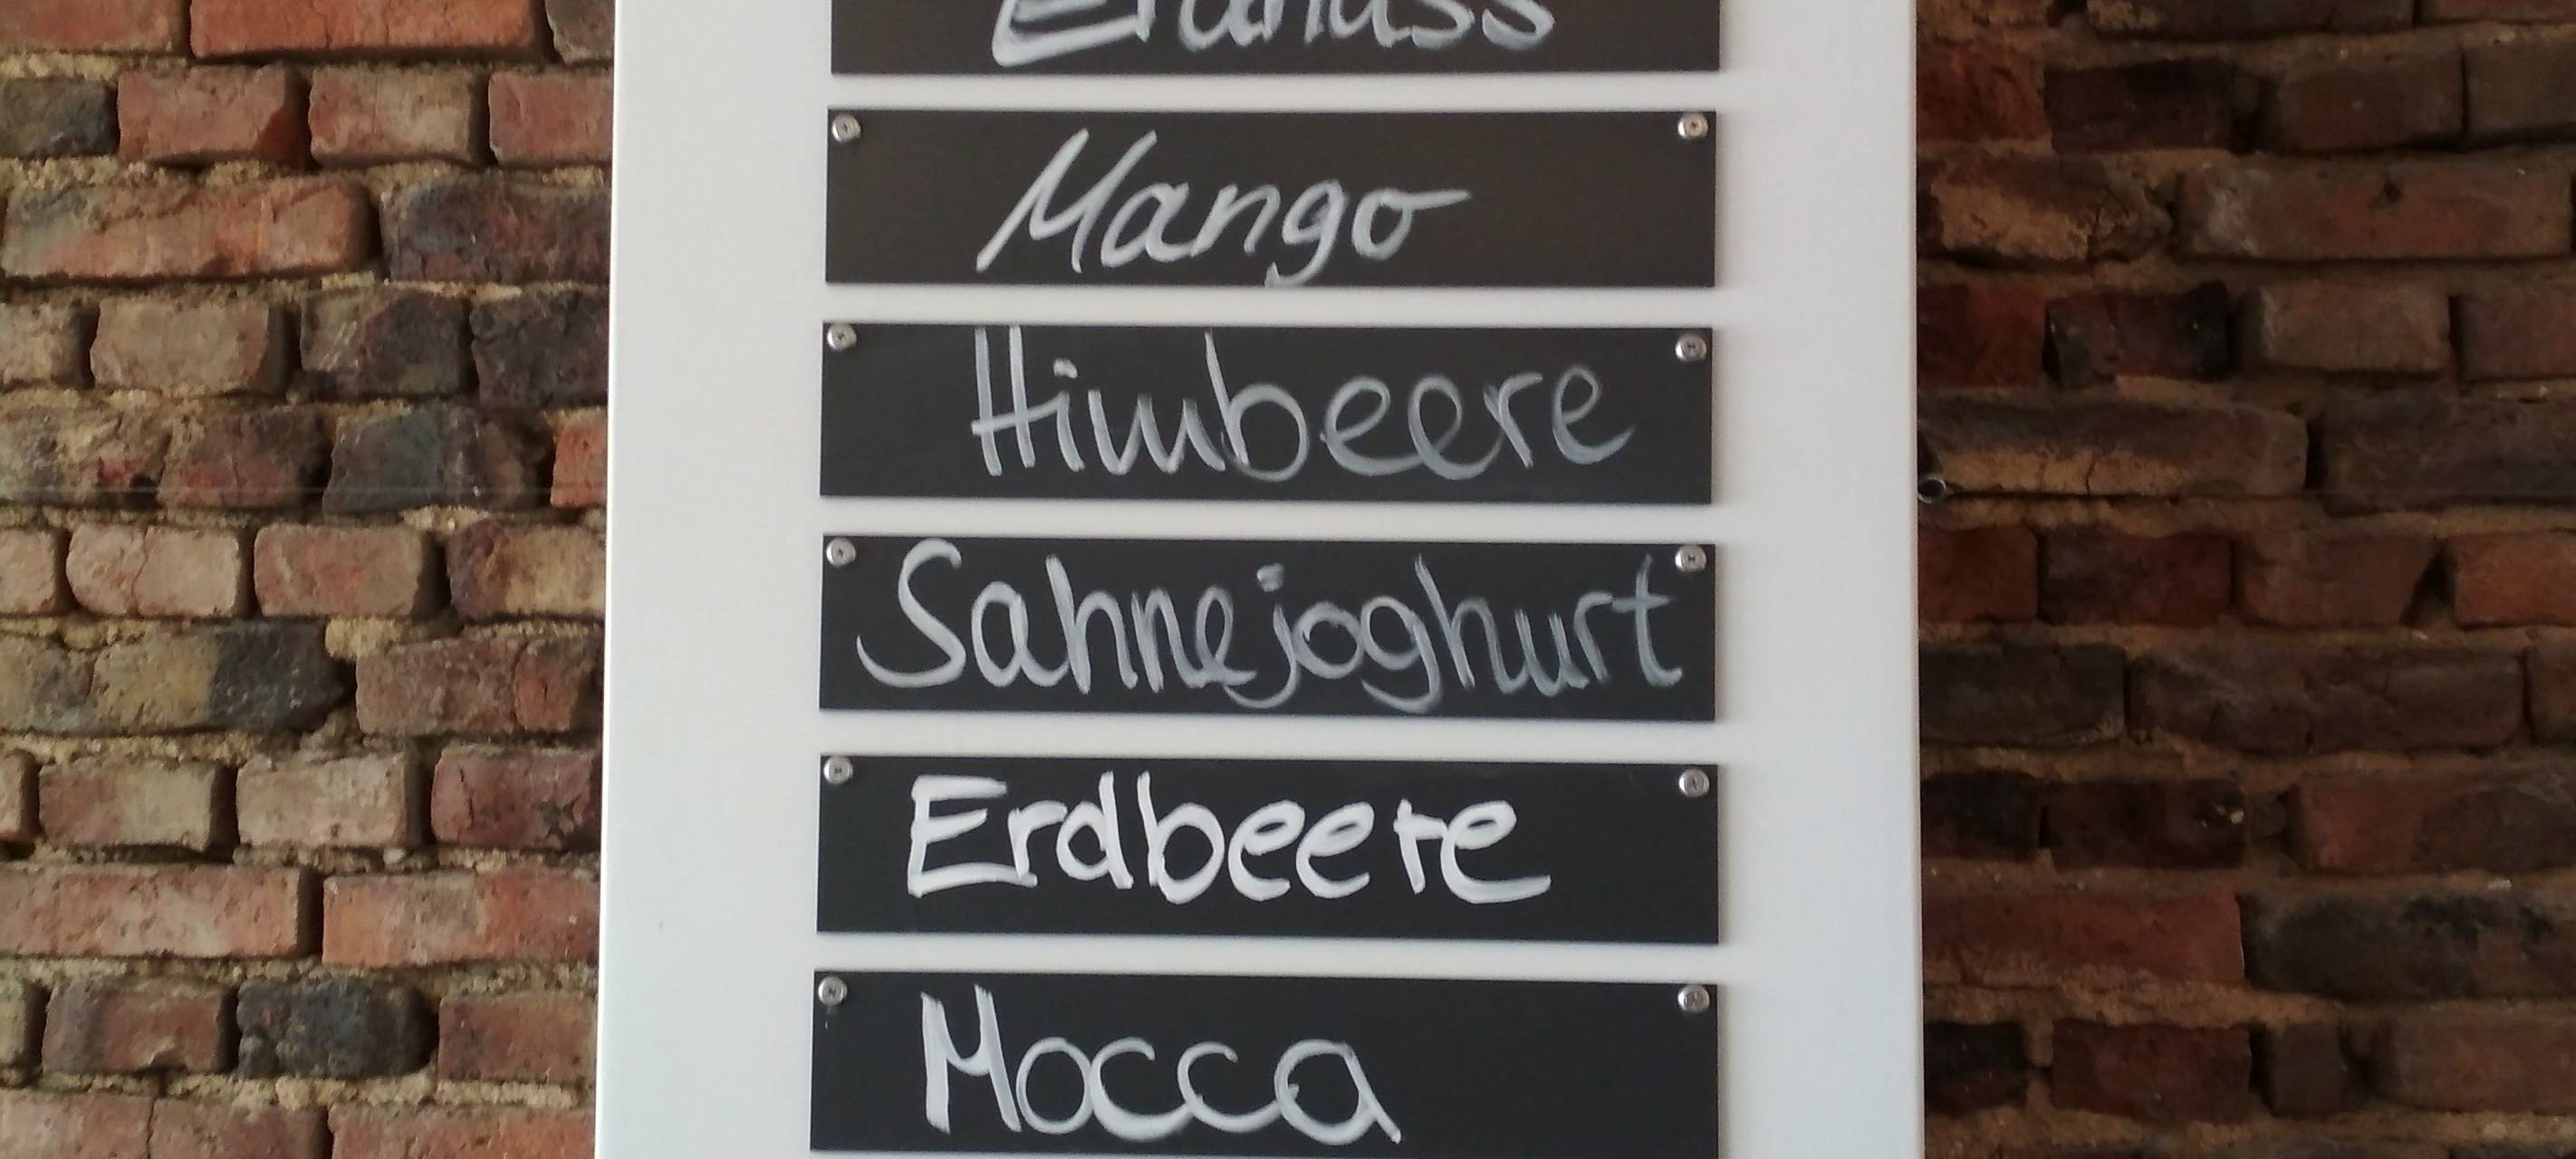 Erdnuss
Mango
Himbeere
Sahnejoghurt
Erdbeere
Mocca